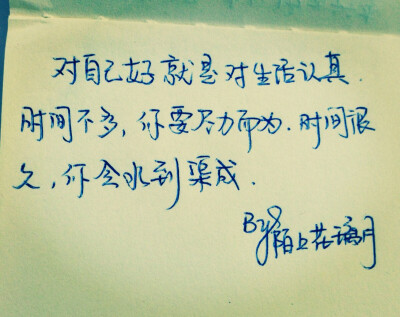 对自己好就是对生活认真.
时间不多,你要尽力而为.时间很
久,你会水到渠成.
By 陌上花满月